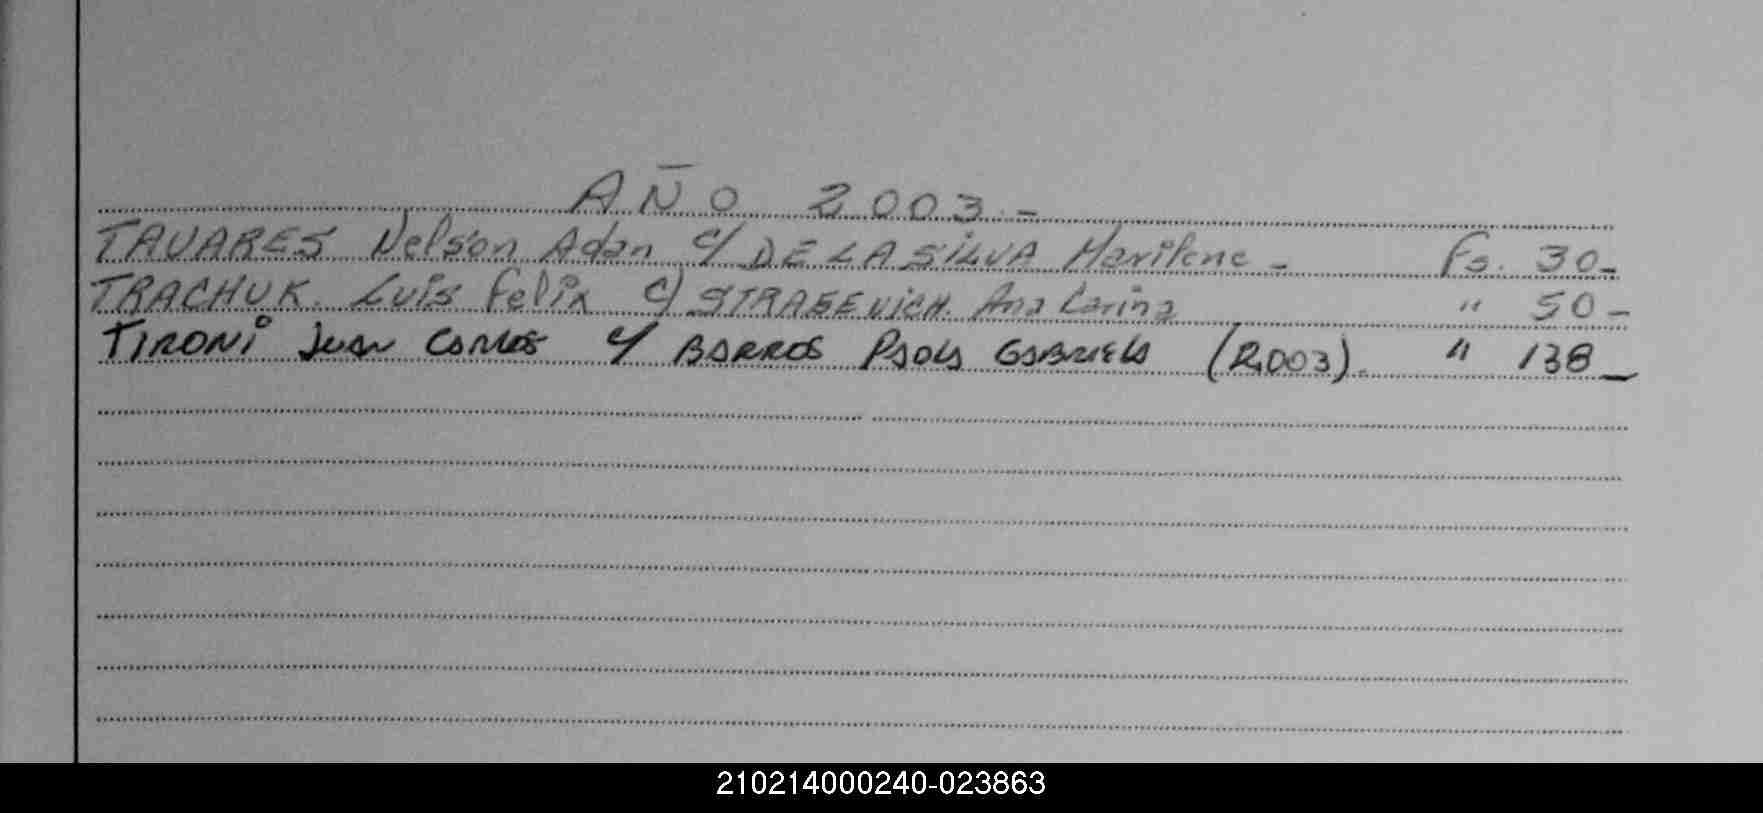 AÑO 2003.-
TAVARES Nelson Adan c/ DE LA SILVA Marilene - Fs. 30-
TRACHUK. Luis Felix c/ STRASEVICH. Ana Carina " 50-
TIRONI Juan Carlos c/ BARROS Paola Gabriela (2,003). " 138-
210214000240-023863